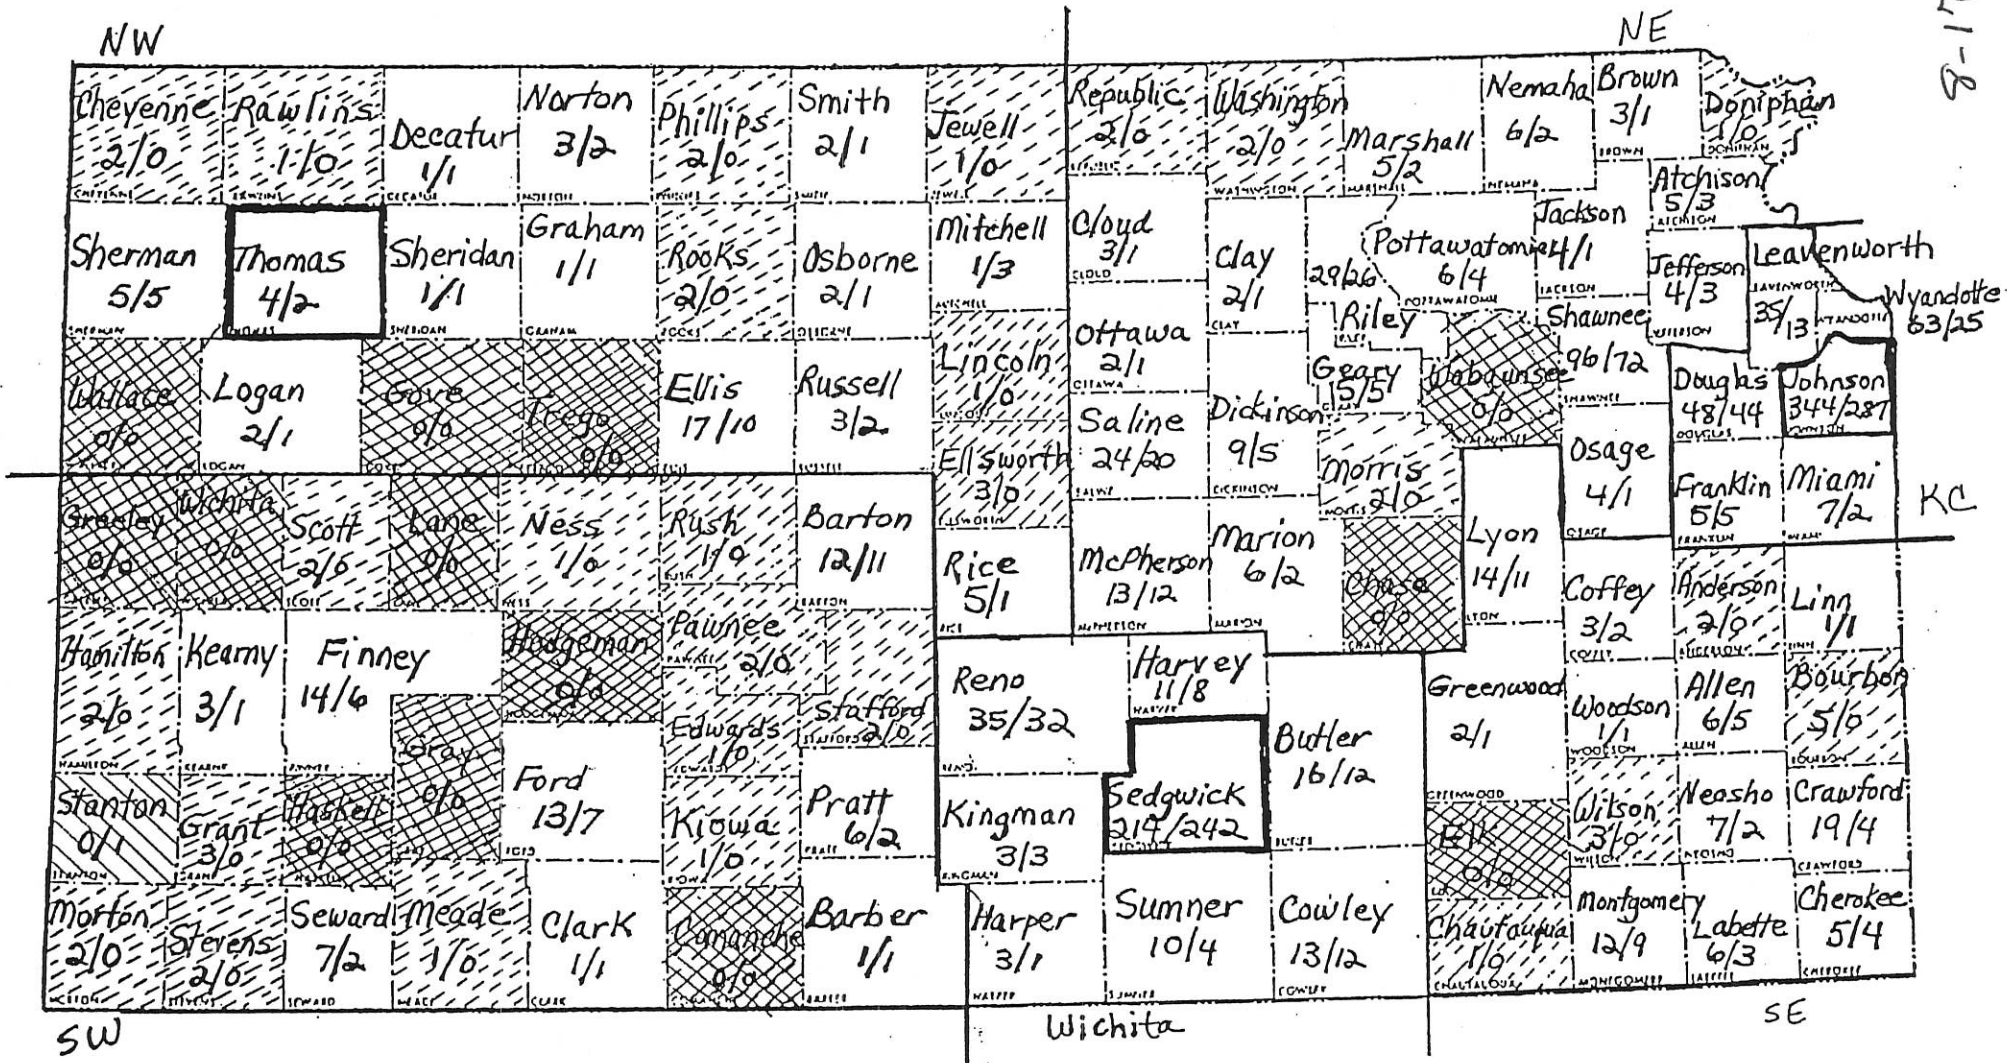 NW
NE
8-17
Cheyenne
2/0
Rawlins
1/0
Decatur
1/1
Norton
3/2
Phillips
2/0
Smith
2/1
Jewell
1/0
Republic
2/0
Washington
2/0
Marshall
5/2
Nemaha
6/2
Brown
3/1
Doniphan
1/0
Atchison
5/3
Sherman
5/5
Thomas
4/2
Sheridan
1/1
Graham
1/1
Rooks
2/0
Osborne
2/1
Mitchell
1/3
Cloud
3/1
Clay
2/1
29/26
Riley
Pottawatomie
6/4
Jackson
4/1
Jefferson
4/3
Leavenworth
35/13
Wyandotte
63/25
Wallace
0/0
Logan
2/1
Gove
0/0
Trego
0/0
Ellis
17/10
Russell
3/2
Lincoln
1/0
Ottawa
2/1
Geary
5/5
Wabaunsee
0/0
Shawnee
96/72
Douglas
48/44
Johnson
344/287
Ellsworth
3/0
Saline
24/20
Dickinson
9/5
Morris
2/0
Osage
4/1
Franklin
5/5
Miami
7/2
KC
Greeley
0/0
Wichita
0/0
Scott
2/0
Lane
0/0
Ness
1/0
Rush
1/0
Barton
12/11
Rice
5/1
McPherson
13/12
Marion
6/2
Chase
0/0
Lyon
14/11
Coffey
3/2
Anderson
2/0
Linn
1/1
Hamilton
2/0
Kearny
3/1
Finney
14/6
Hodgeman
0/0
Pawnee
2/0
Edwards
1/0
Stafford
2/0
Reno
35/32
Harvey
11/8
Butler
16/12
Greenwood
2/1
Woodson
1/1
Allen
6/5
Bourbon
5/0
Stanton
0/1
Grant
3/0
Haskell
0/0
Gray
0/0
Ford
13/7
Kiowa
1/0
Pratt
6/2
Kingman
3/3
Sedgwick
Elk
0/0
Wilson
3/0
Neosho
7/2
Crawford
19/4
Morton
2/0
Stevens
2/0
Seward
7/2
Meade
1/0
Clark
1/1
Comanche
0/0
Barber
1/1
Harper
3/1
Sumner
10/4
Cowley
13/12
Chautauqua
1/0
Montgomery
12/9
Labette
6/3
Cherokee
5/4
SW
Wichita
SE